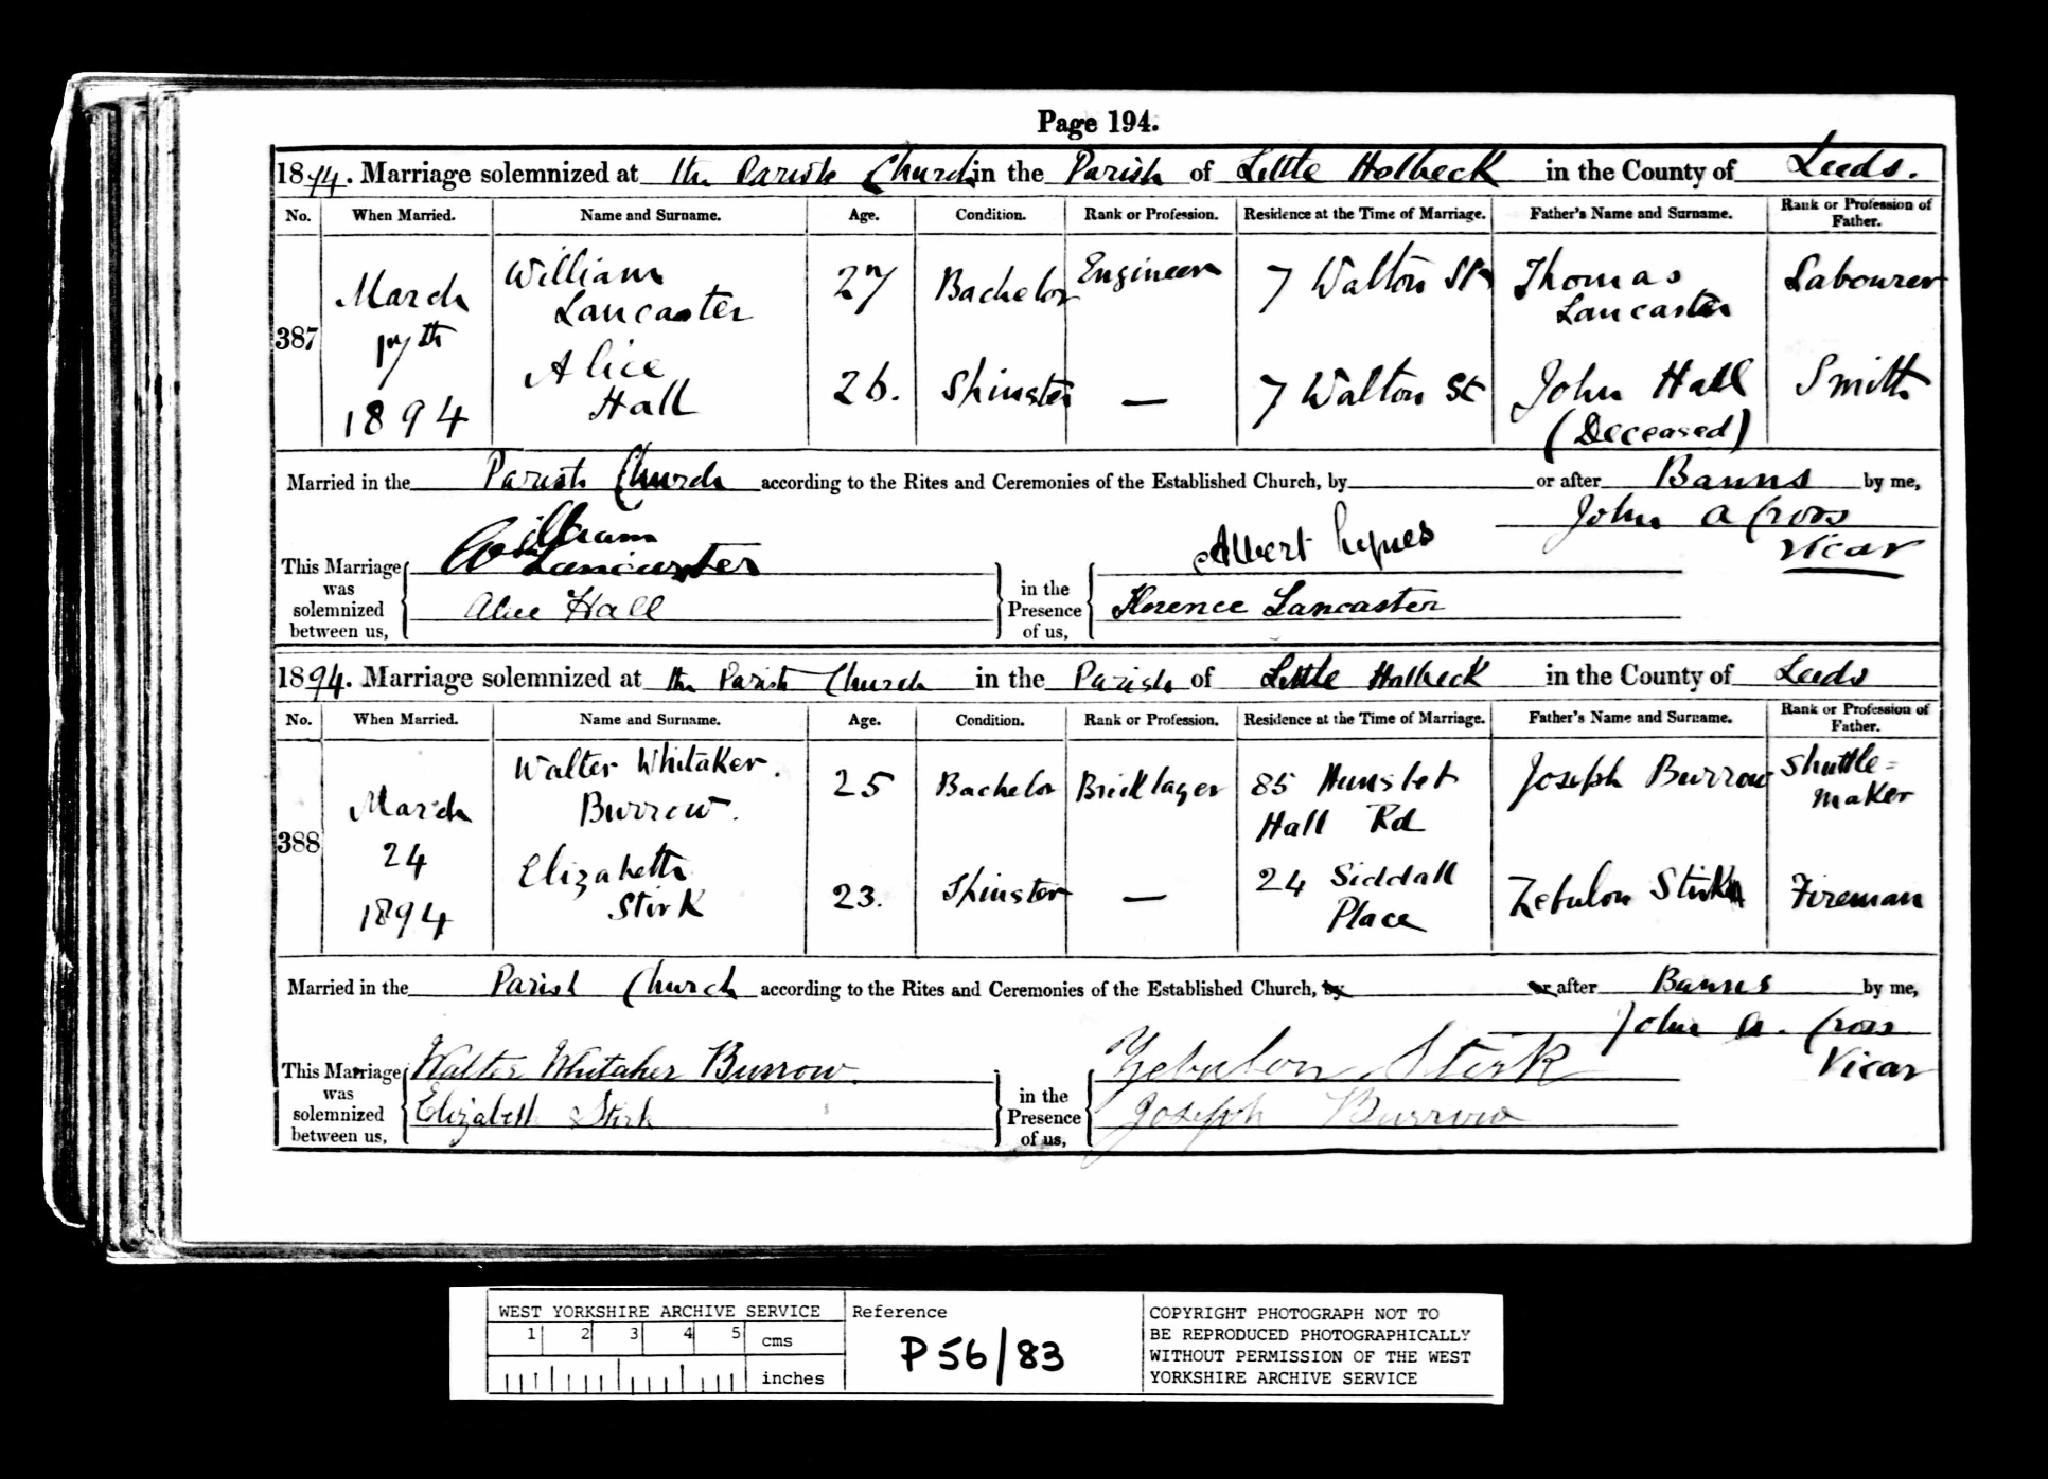 Page 194.
1894. Marriage solemnized at the Parish Church in the Parish of Little Holbeck in the County of Leeds.
No. When Married. Name and Surname. Age. Condition. Rank or Profession. Residence at the Time of Marriage. Father's Name and Surname. Rank or Profession of Father.
387 March 17th 1894 William Lancaster 27 Bachelor Engineer 7 Walton St Thomas Lancaster Labourer
Alice Hall 26. Spinster — 7 Walton St John Hall (Deceased) Smith
Married in the Parish Church according to the Rites and Ceremonies of the Established Church, by or after Banns by me,
John A Cross
Vicar
This Marriage was solemnized between us, William Lancaster Alice Hall in the Presence of us, Albert Florence Lancaster
1894. Marriage solemnized at the Parish Church in the Parish of Little Holbeck in the County of Leeds
No. When Married. Name and Surname. Age. Condition. Rank or Profession. Residence at the Time of Marriage. Father's Name and Surname. Rank or Profession of Father.
388 March 24 1894 Walter Whitaker Burrow. 25 Bachelor Bricklayer 85 Hunslet Hall Rd Joseph Burrow Shuttle=maker
Elizabeth Stirk 23. Spinster — 24 Siddall Place Zebulon Stirk Fireman
Married in the Parish Church according to the Rites and Ceremonies of the Established Church, by or after Banns by me,
John A. Cross
Vicar
This Marriage was solemnized between us, Walter Whitaker Burrow. Elizabeth Stirk in the Presence of us, Zebulon Stirk Joseph Burrow
WEST YORKSHIRE ARCHIVE SERVICE
1 2 3 4 5 cms
inches
Reference
P56/83
COPYRIGHT PHOTOGRAPH NOT TO
BE REPRODUCED PHOTOGRAPHICALLY
WITHOUT PERMISSION OF THE WEST
YORKSHIRE ARCHIVE SERVICE